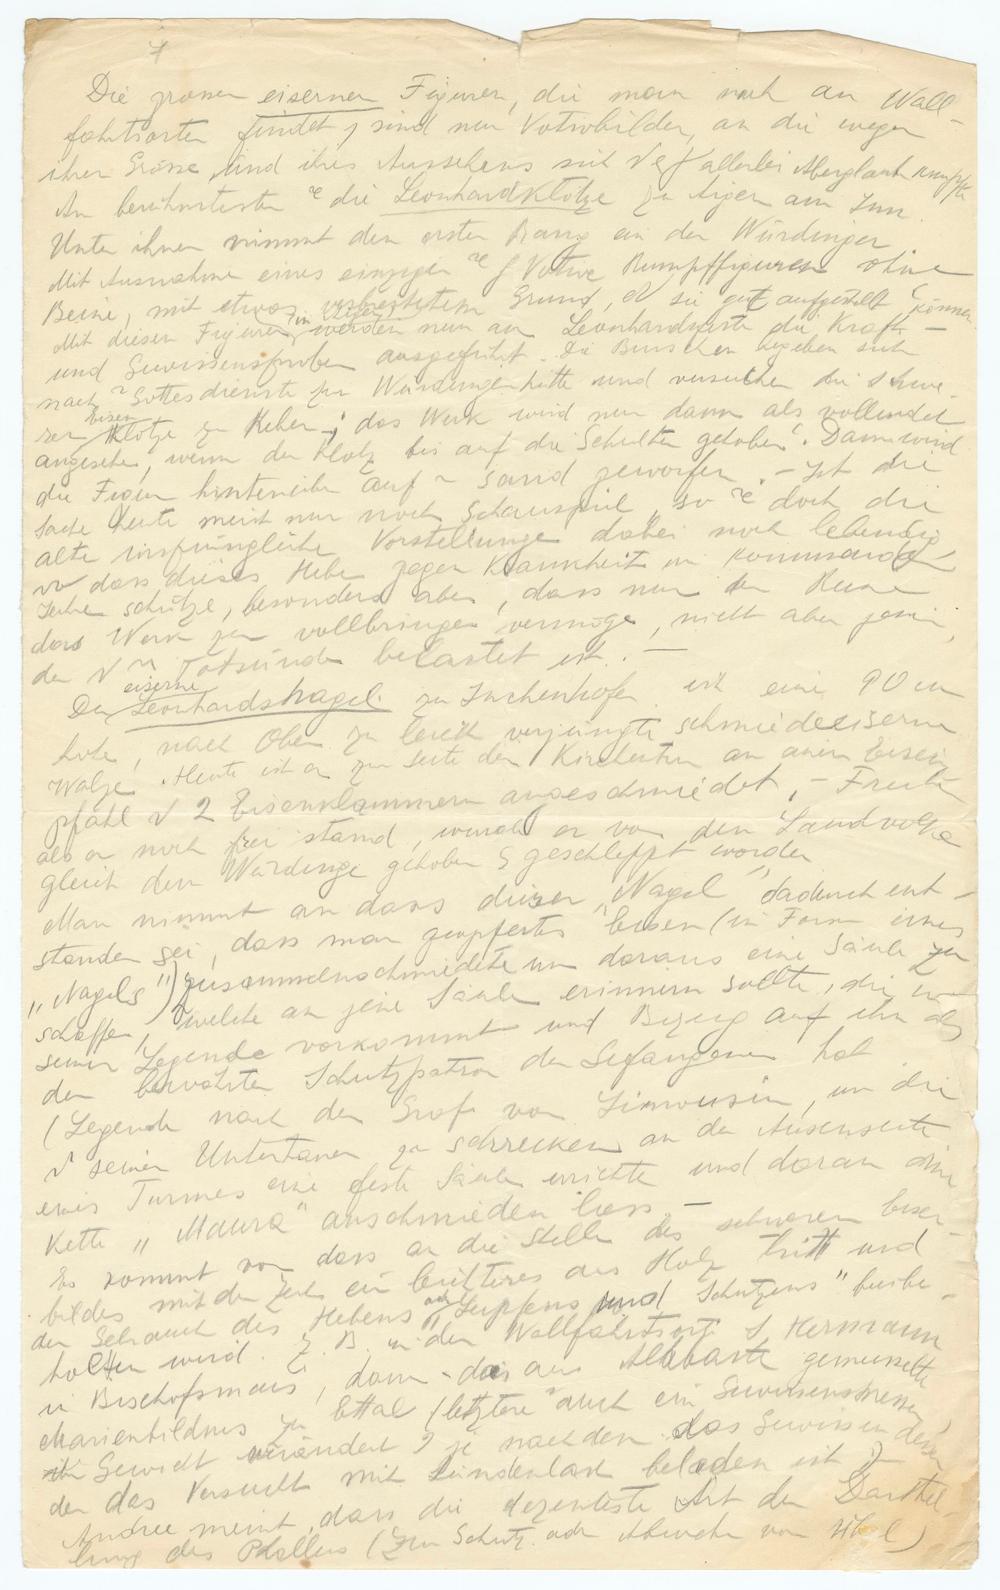 7
Die grossen eisernen Figuren, die man noch an Wall-
fahrtsorten findet, sind nur Votivbilder, an die wegen
ihrer Grösse und ihres Aussehens sich allerlei Aberglaube knüpfte
Am berühmtesten die Leonhardklötze zu Aigen am Inn.
Unter ihnen nimmt den ersten Rang ein der Würdinger
Mit Ausnahme eines einzigen Votive Rumpffiguren ohne
Beine, mit etwas verbreitetem Grund, sie gut aufgestellt können
Mit diesen Figuren werden nun am Leonhardfeste die Kraft-
und Gewissensproben ausgeführt. Die Burschen begeben sich
nach Gottesdienste zur Würdingerhütte und versuchen die schwe-
ren Eisen Klötze zu heben; das Werk wird nur dann als vollendet
angesehen, wenn der Klotz bis auf die Schulter gehoben. Dann wird
die Figur hintenüber auf Sand geworfen. - Ist die
Sache heute meist nur noch Schauspiel, so doch die
alte ursprüngliche Vorstellung dabei noch lebendig
dass dieses Heben gegen Krankheit im kommenden
Jahre schütze, besonders aber, dass nur der Reine
das Werk zu vollbringen vermöge, nicht aber jener,
der Todsünden belastet ist. -
Der eiserne Leonhardsnagel zu Inchenhofen ist eine 90 cm
hohe, nach Oben zu leicht verjüngte schmiedeiserne
Walze. Heute ist er zur Seite der Kirchentür an einem Eisen
pfahl 2 Eisenklammern angeschmiedet, - Früher
als er noch frei stand, wurde er von dem Landvolke
gleich dem Würdinger gehoben & geschleppt worden
Man nimmt an dass dieser "Nagel" dadurch ent-
standen sei, dass man geopfertes Eisen (in Form eines
"Nagels") zusammenschmiedete um daraus eine Säule zu
schaffen, welche an jene Säule erinnern sollte, die in
seiner Legende vorkommt und Bezug auf ihn als
den bewährten Schutzpatron der Gefangenen hat
(Legende nach der Graf von Limousin, um die
seiner Untertanen zu schrecken an der Aussenseite
eines Turmes eine feste Säule errichtete und daran eine
Kette "Maura" anschmieden liess. -
Es kommt vor, dass an die Stelle des schweren Eisen-
bildes mit der Zeit ein leichteres aus Holz tritt und
der Gebrauch des Hebens oder "Lupfens und Schutzens" beibe-
halten wird. Z. B. in der Wallfahrtsort S. Hermann
in Bischofsmais, dann das aus Alabaster gemeisselte
Marienbildnis zu Ettal (letztere auch ein Gewissensmesser,
Gewicht verändert je nachdem das Gewissen dessen
der das Versucht mit Sündenlast beladen ist)
Andree meint, dass die dezenteste Art der Darstel-
lung des Phallus (zum Schutz oder Abwehr von Übel)